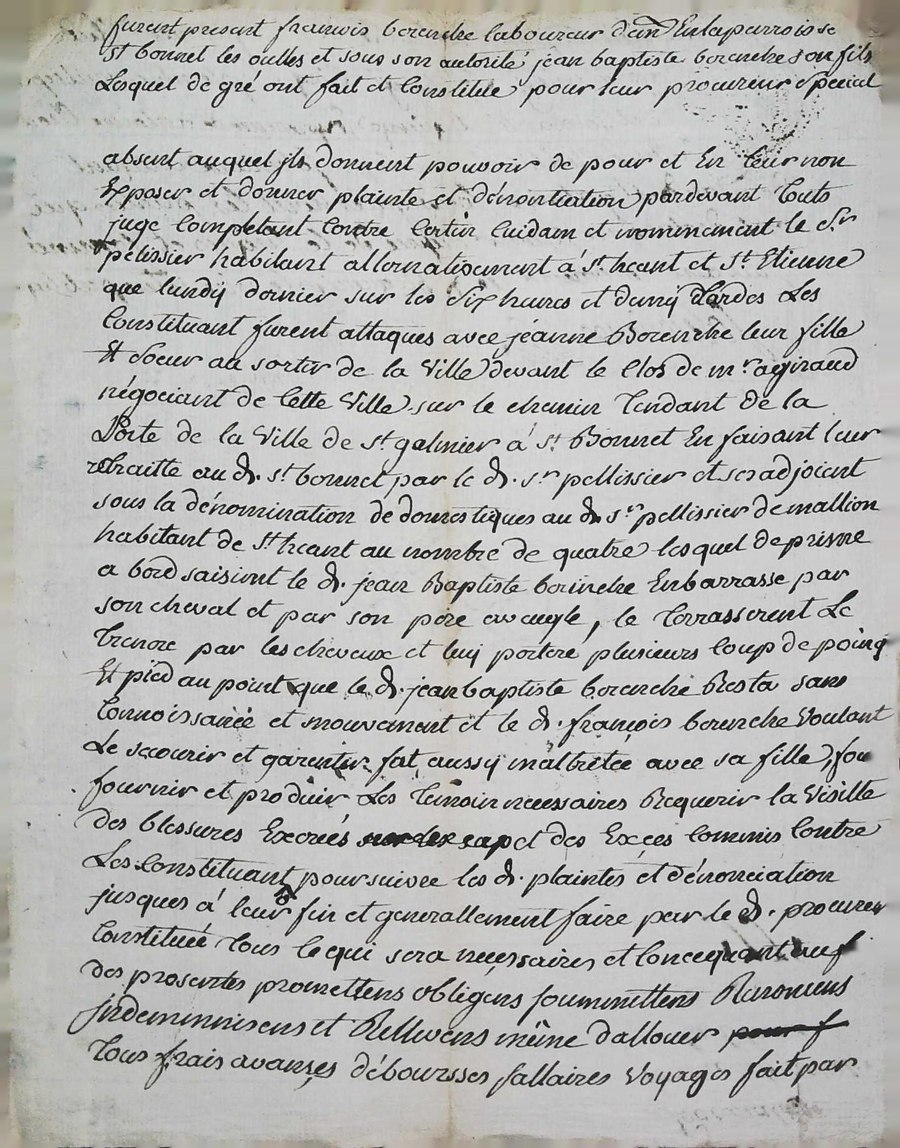 furent present francois berenche laboureur dem.t En la parroisse
st bonnet les oulles et sous son autorité jean baptiste berenche son fils
Lesquel de gré ont fait et Constitué pour leur procureur special
absent auquel jls donnent pouvoir de pour et En leur non
Exposer et donner plainte et dénontiation pardevant touts
juge Compétant Contre Certin Cuidam et nominément le S.r
pélissier habitant alternativement á st. heant et St. Etienne
que lundy dernier sur les six heures et demy Les
Constituant furent attaques avec jéanne Berenche leur fille
Et soeur au sortir de la Ville devant le Clos de m.r agiraud
négociant de Cette Ville sur le chemin tendant de la
Porte de la Ville de st. galmier á st. Bonnet En faisant leur
retraitte au d. st. bonnet par le d. s.r pellissier et ses adjoient
sous la dénomination de domestiques au d. s.r pellissier de mallion
habitant de st. heant au nombre de quatre lesquel de prisme
a bord saisirent le d. jean Baptiste berinche Enbarrasse par
son cheval et par son pere aveugle, le terrasserent Le
trenore par les cheveux et luy porteré plusieurs Coup de poing
Et pied au point que le d. jean baptiste berenche Resta sans
Connoissance et mouvement et le d. françois berenche Voulant
Le secourir et garentir fut aussy maltretée avec sa fille,
fournir et produir Les témoin necessaires Requerir la Visitte
des blessures Excreés et des Exçes Commis Contre
Les Constituant poursuivre les d. plaintes et dénonciation
jusques á leur fin et generallement faire par le d. procureur
Constitué tous le qui sera neçessaires et Concequant
des presentes promettens obligens soummettens Renoncens
jndemnnisens et Rellevens même d'allouer
tous frais avançes déboursses sallaires Voyages fait par